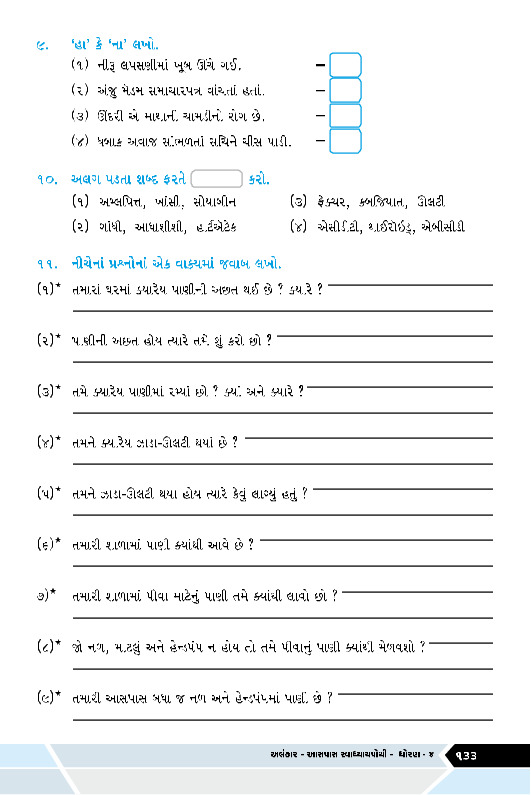 ૯. ‘હા’ કે ‘ના’ લખો.
(૧) નીરૂ લપસણીમાં ખૂબ ઊંચે ગઈ. –
(૨) અંજુ મેડમ સમાચારપત્ર વાંચતાં હતાં. –
(૩) ઊંદરી એ માથાની ચામડીનો રોગ છે. –
(૪) ધબાક અવાજ સાંભળતાં સચિને ચીસ પાડી. –
૧૦. અલગ પડતા શબ્દ ફરતે કરો.
(૧) અમ્લપિત્ત, ખાંસી, સોયાબીન (૩) ફ્રેક્ચર, કબજિયાત, ઊલટી
(૨) ગાંધી, આધાશીશી, હાર્ટએટેક (૪) એસીડીટી, થાઈરોઇડ્, એબીસીડી
૧૧. નીચેનાં પ્રશ્નોનાં એક વાક્યમાં જવાબ લખો.
(૧)* તમારાં ઘરમાં ક્યારેય પાણીની અછત થઈ છે ? ક્યારે ?
(૨)* પાણીની અછત હોય ત્યારે તમે શું કરો છો ?
(૩)* તમે ક્યારેય પાણીમાં રમ્યાં છો ? ક્યાં અને ક્યારે ?
(૪)* તમને ક્યારેય ઝાડા-ઊલટી થયાં છે ?
(૫)* તમને ઝાડા-ઊલટી થયા હોય ત્યારે કેવું લાગ્યું હતું ?
(૬)* તમારી શાળામાં પાણી ક્યાંથી આવે છે ?
૭)* તમારી શાળામાં પીવા માટેનું પાણી તમે ક્યાંથી લાવો છો ?
(૮)* જો નળ, માટલું અને હેન્ડપંપ ન હોય તો તમે પીવાનું પાણી ક્યાંથી મેળવશો ?
(૯)* તમારી આસપાસ બધા જ નળ અને હેન્ડપંપમાં પાણી છે ?
અલંકાર - આસપાસ સ્વાધ્યાયપોથી - ધોરણ - ૪ ૧૩૩